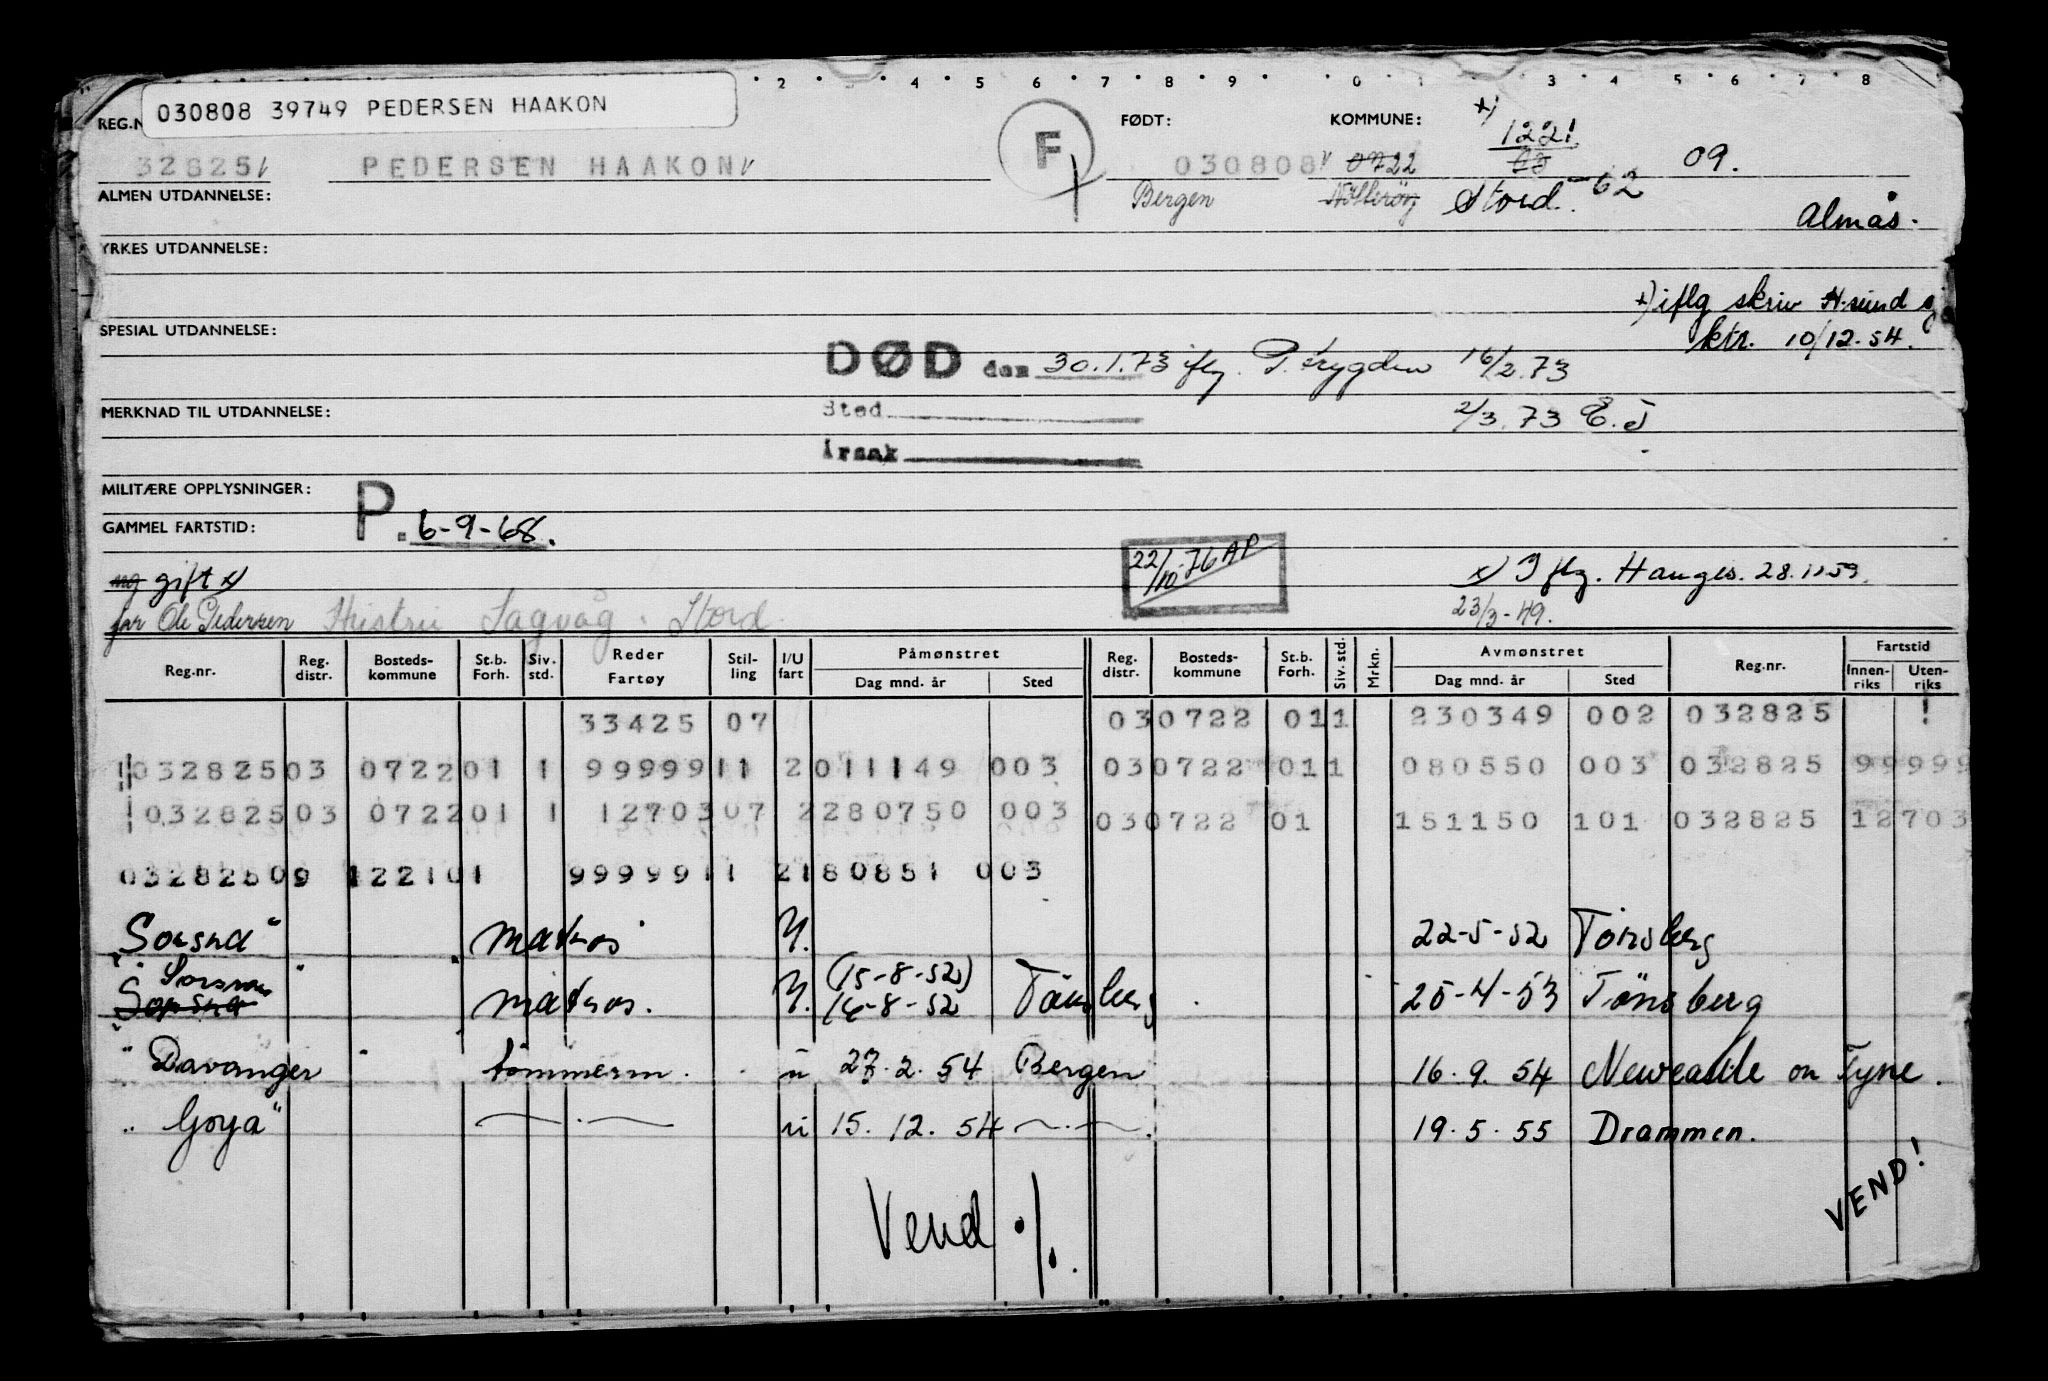 2 3 4 5 6 7 8 9 0 1 3 4 5 6 7 8
030808 39749 PEDERSEN HAAKON
REG.N FØDT: KOMMUNE: x) 1221
32825 PEDERSEN HAAKON F 030808 0722 09.
ALMEN UTDANNELSE: Bergen Nøtterøy Stord -62
Almås.
YRKES UTDANNELSE:
x) iflg skriv H.sund sj
SPESIAL UTDANNELSE: ktr. 10/12.54.
DØD den 30.1.73 iflg. P. trygden 16/2.73
MERKNAD TIL UTDANNELSE: Sted 2/3.73 E.J
Årsak
MILITÆRE OPPLYSNINGER:
GAMMEL FARTSTID: P. 6-9-68.
22/10-76 AP
ug gift x) x) Iflg. Hauges. 28.11.59.
far Ole Pedersen Hustru Sagvåg. Stord 23/3-49.
Reg.nr. Reg. distr. Bosteds-kommune St.b. Forh. Siv. std. Reder Fartøy Stil-ling I/U fart Påmønstret Dag mnd. år Sted Reg. distr. Bosteds-kommune St.b. Forh. Siv. std. Mrkn. Avmønstret Dag mnd. år Sted Reg.nr. Fartstid Innen-riks Uten-riks
33425 07 030722 011 230349 002 032825
032825 03 0722 01 1 99999 11 2 011149 003 030722 011 080550 003 032825 99999
032825 03 0722 01 1 12703 07 2 280750 003 030722 01 151150 101 032825 12703
032825 09 1221 01 99999 11 2 180851 003
"Sorsna" matros U. 22-5-52 Tönsberg
Sorsna
"Sorsna" matros. U. (15-8-52) 16-8-52 Tönsberg 25-4-53 Tönsberg
"Davanger" tömmerm. u 27.2.54 Bergen 16.9.54 Newcastle on Tyne.
"Goya" —.— u 15.12.54 —.— 19.5.55 Drammen.
Vend ./. VEND!